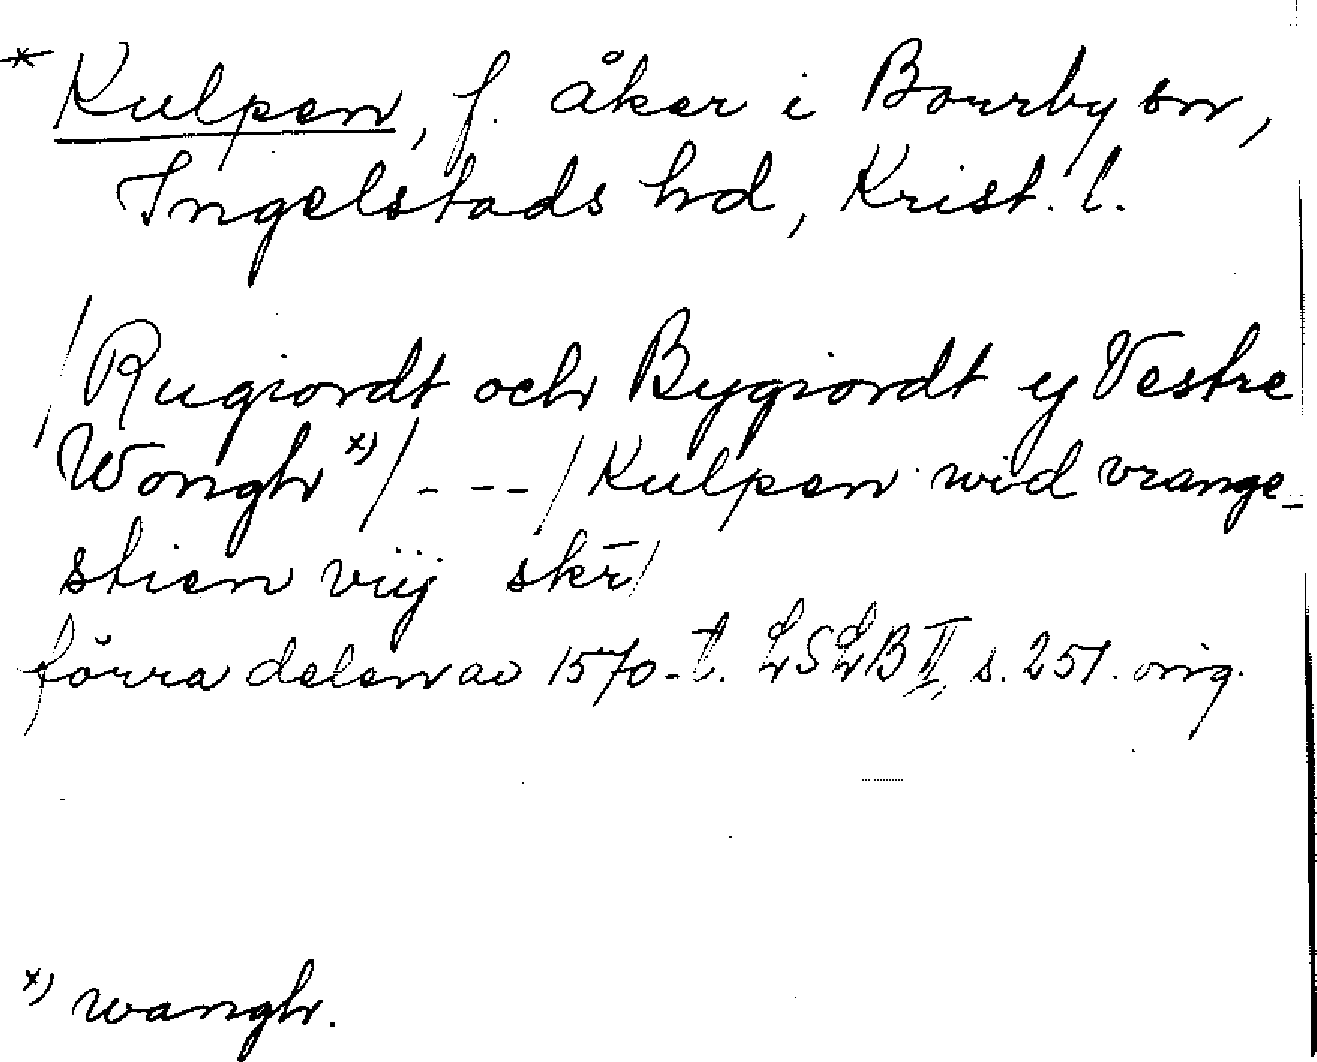 * Kulpen, f. åker i Borrby sn,
Ingelstads hd, Krist. l.
/Rugiordt och Bygiordt ij Vestre
Wongh x)/ - - - /Kulpen wid vrange-
stien viij skr̄/
förra delen av 1570-t. LSLB II, s. 251. orig.
x) wangh.